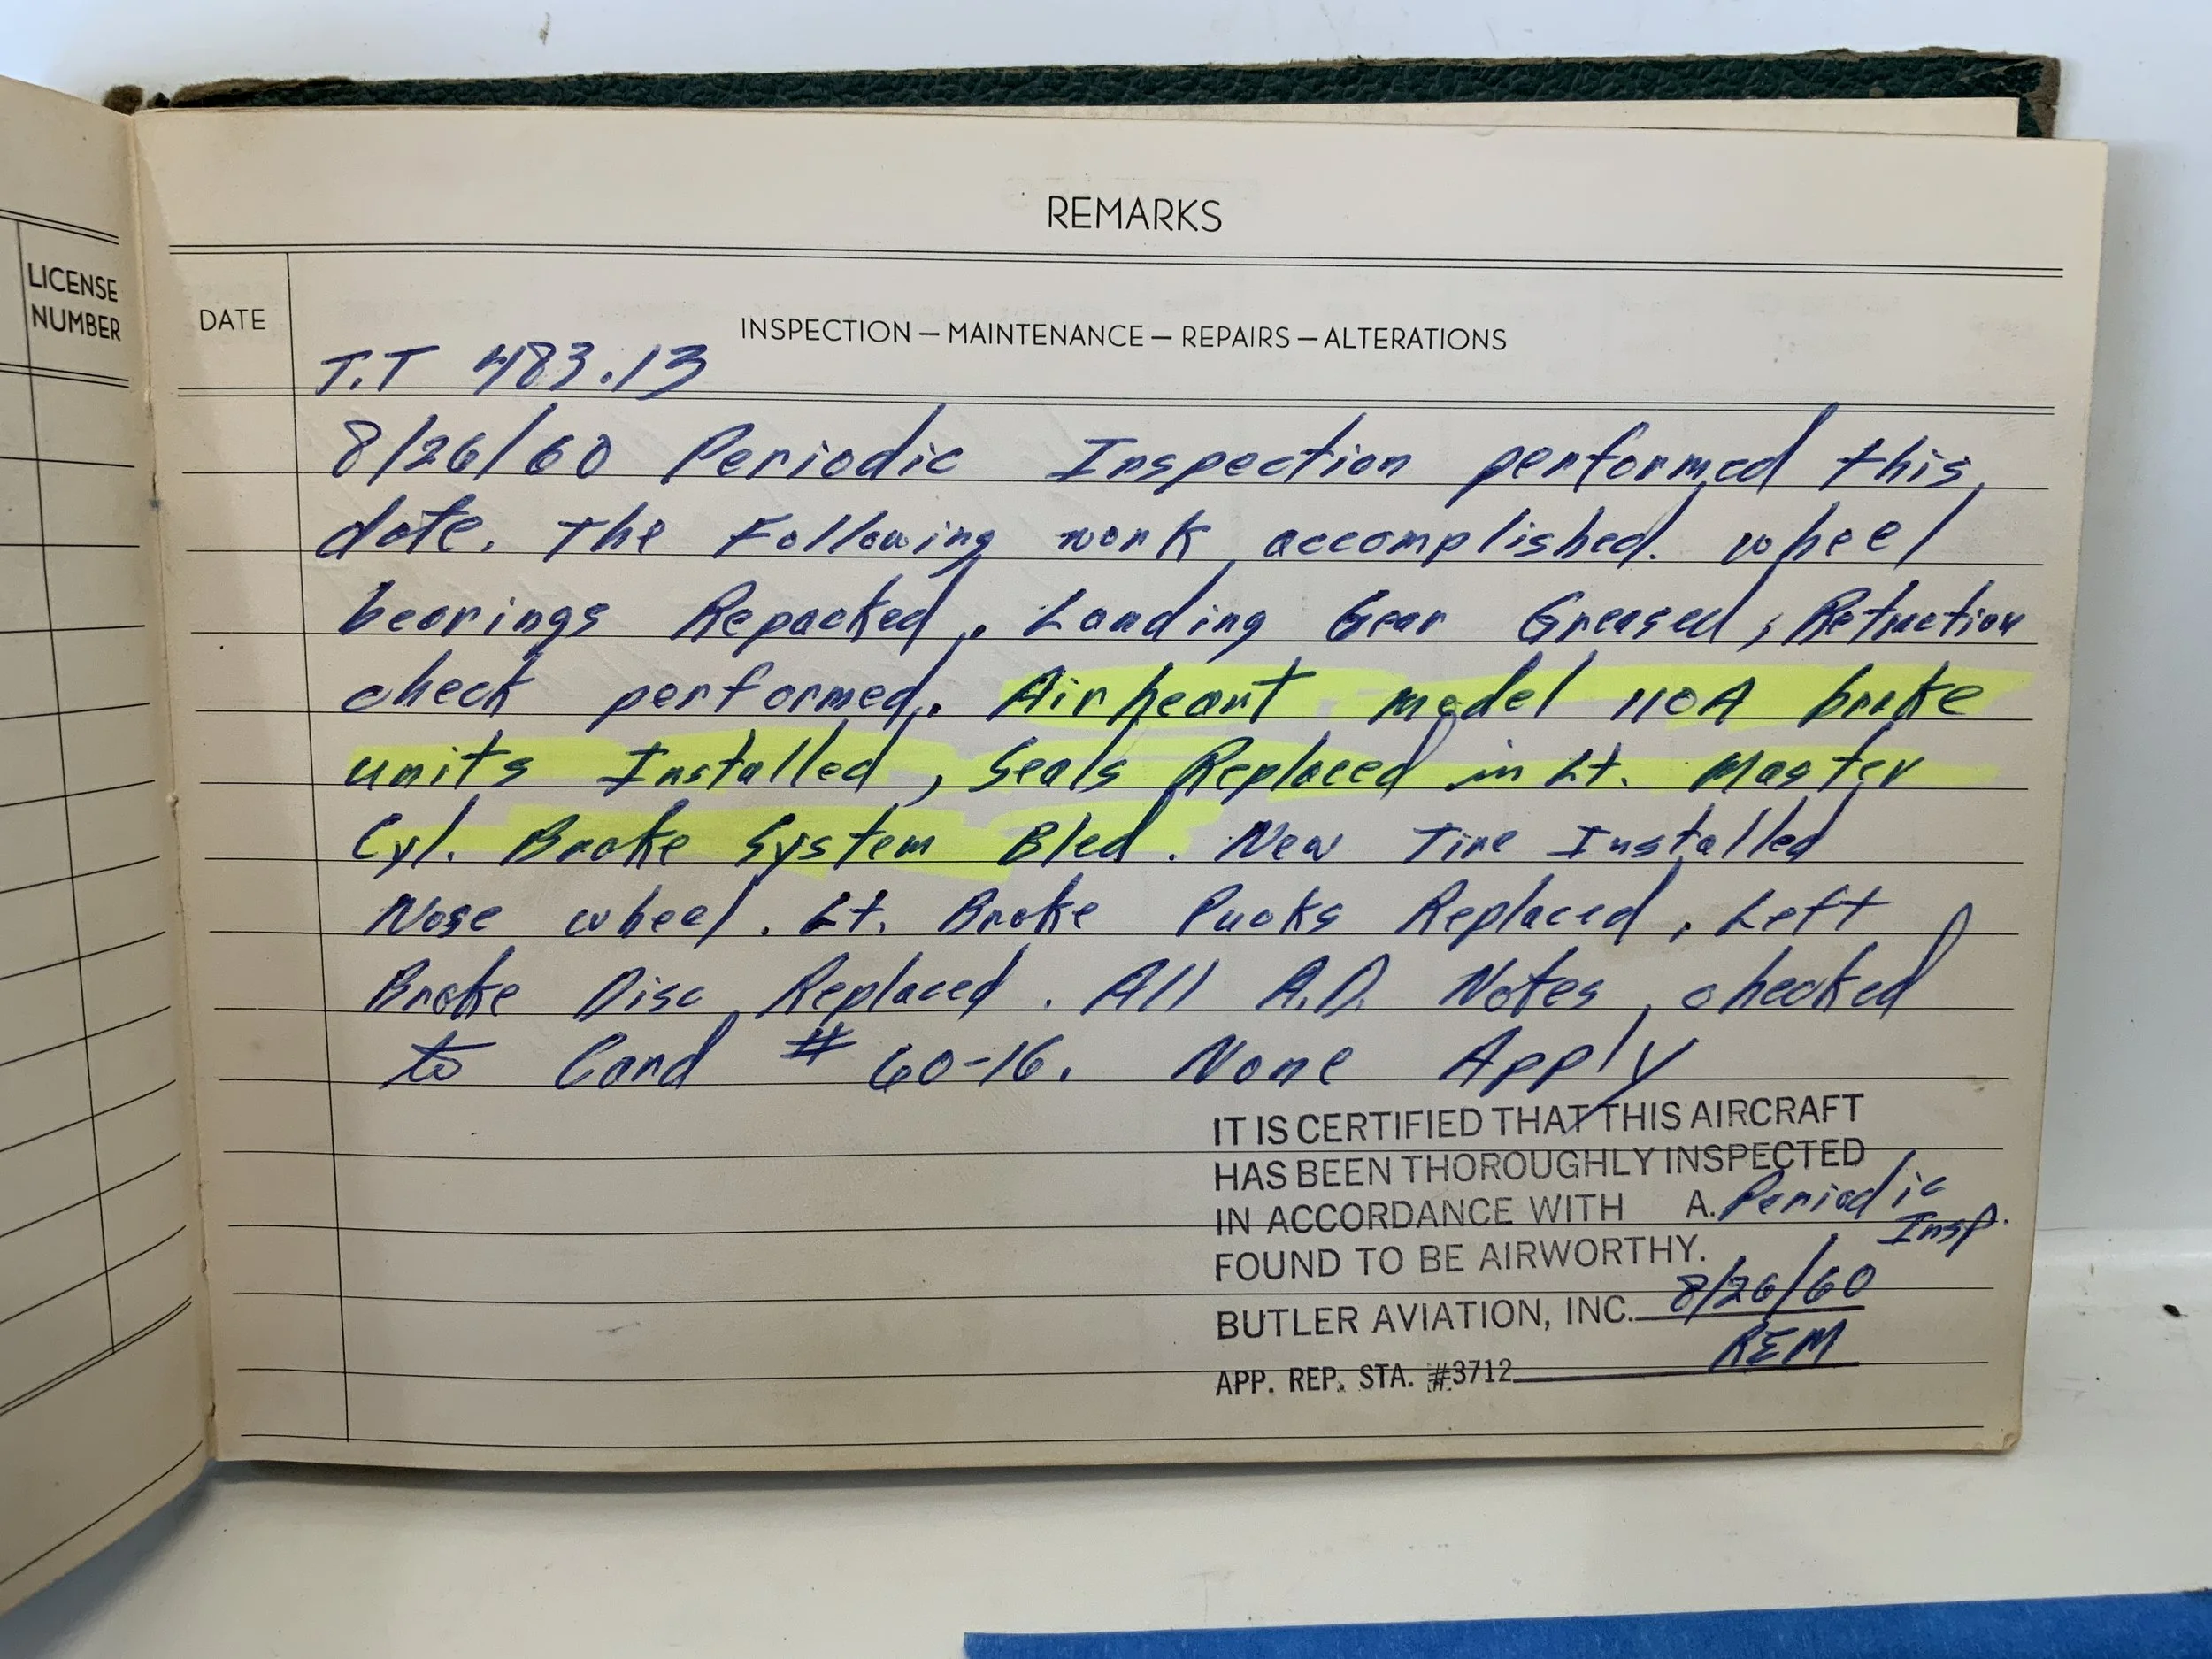 REMARKS
LICENSE
NUMBER
DATE
INSPECTION — MAINTENANCE — REPAIRS — ALTERATIONS
T.T 483.13
8/26/60 Periodic Inspection performed this
date. The Following work accomplished. wheel
bearings Repacked. Landing Gear Greased, Retraction
check performed. Airheart model 110A brake
units Installed, Seals Replaced in Lt. Master
Cyl. Brake System Bled. New Tire Installed
Nose wheel. Lt. Brake Pucks Replaced, Left
Brake Disc Replaced. All A.D. Notes checked
to Card # 60-16. None Apply
IT IS CERTIFIED THAT THIS AIRCRAFT
HAS BEEN THOROUGHLY INSPECTED
IN ACCORDANCE WITH A. Periodic
Insp.
FOUND TO BE AIRWORTHY.
BUTLER AVIATION, INC. 8/26/60
REM
APP. REP. STA. #3712